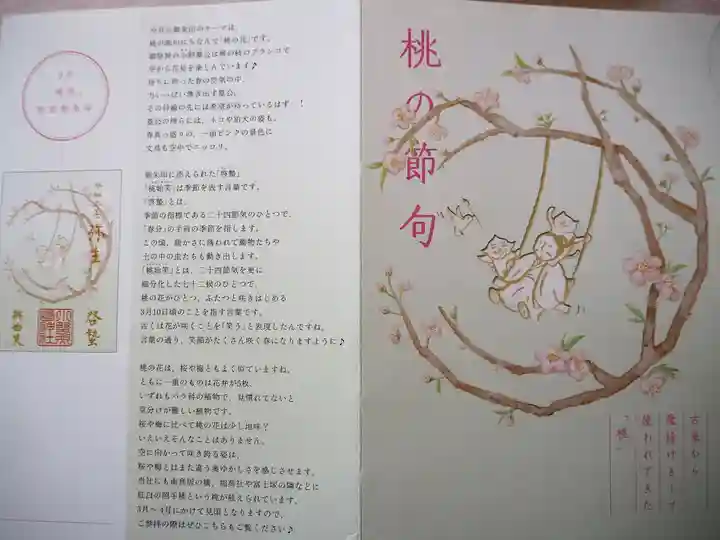 桃の節句
古来から
魔除けとして
使われてきた
「桃」
今月の御朱印のテーマは
桃の節句にちなんで「桃の花」です。
御祭神の小野篁公は桃の枝のブランコで
空から花見を楽しんでいます♪
待ちに待った春の空気の中、
ちいっぱい漕ぎ出す篁公。
その目線の先には希望が待っているはず !
篁公の傍らには、ネコや狛犬の姿も。
春真っ盛りの、一面ピンクの景色に
文鳥も空中でニッコリ。
御朱印に添えられた「啓蟄」
「桃始笑」は季節を表す言葉です。
「啓蟄」とは、
季節の指標である二十四節気のひとつで、
「春分」の手前の季節を指します。
この頃、暖かさに誘われて動物たちや
土の中の虫たちも動き出します。
「桃始笑」とは、二十四節気を更に
細分化した七十二候のひとつで、
桃の花がひとつ、ふたつと咲きはじめる
3月10日頃のことを指す言葉です。
古くは花が咲くことを「笑う」と表現したんですね。
言葉の通り、笑顔がたくさん咲く春になりますように♪
桃の花は、桜や梅ともよく似ていますね。
ともに一重のものは花弁が5枚、
いずれもバラ科の植物で、見慣れてないと
見分けが難しい植物です。
桜や梅に比べて桃の花は少し地味?
いえいえそんなことはありません。
空に向かって咲き誇る姿は、
桜や梅とはまた違う奥ゆかしさを感じさせます。
当社にも南鳥居の横、稲荷社や富士塚の隣などに
紅白の照手桃という桃が植えられています。
3月〜4月にかけて見頃となりますので、
ご参拝の際はぜひこちらもご覧ください♪
弥生
啓蟄
桃始笑